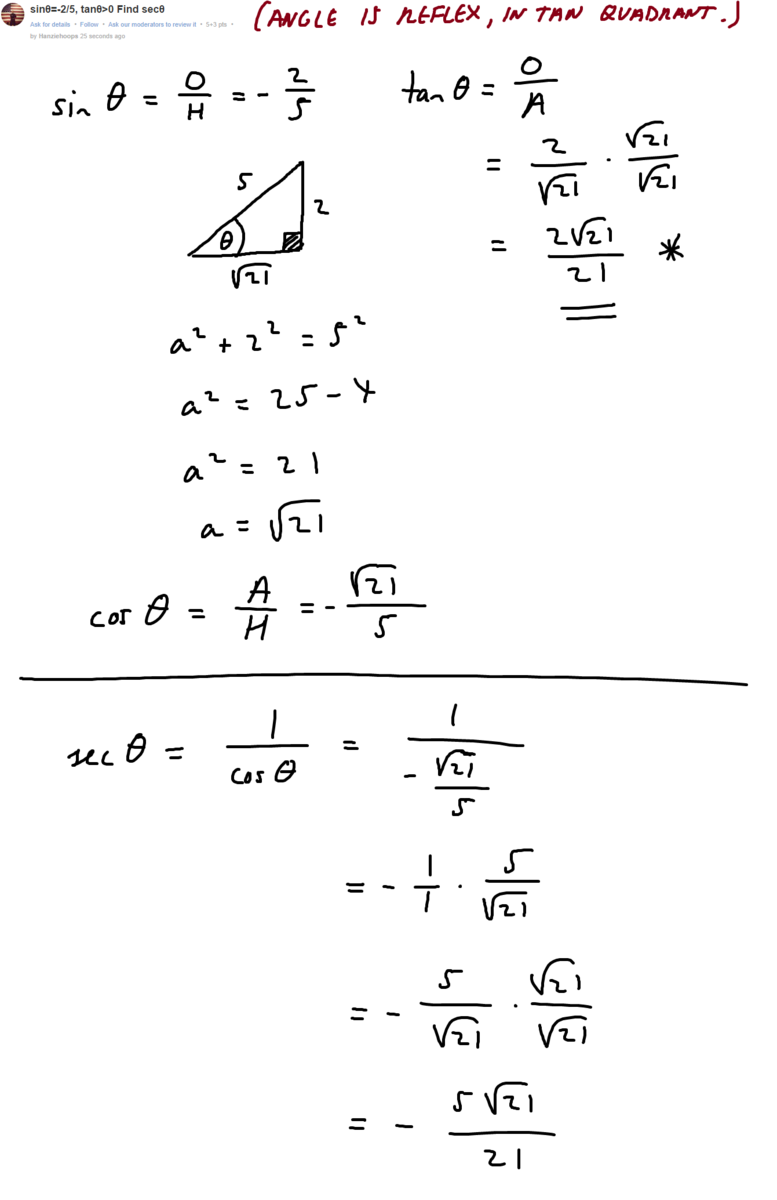 sinθ=-2/5, tanθ>0 Find secθ
Ask for details • Follow • Ask our moderators to review it • 5+3 pts •
by Hanziehoops 25 seconds ago
(ANGLE IS REFLEX, IN TAN QUADRANT.)
sin θ = O/H = - 2/5
tan θ = O/A
= 2/√21 · √21/√21
= 2√21/21 *
5
2
θ
√21
a² + 2² = 5²
a² = 25 - 4
a² = 21
a = √21
cos θ = A/H = - √21/5
sec θ = 1/cos θ = 1/(- √21/5)
= - 1/1 · 5/√21
= - 5/√21 · √21/√21
= - 5√21/21